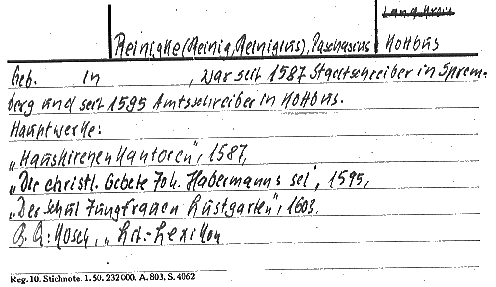 Reinigke (Reinig, Reinigius), Paschasius Kottbus
Geb. in , war seit 1587 Stadtschreiber in Sprem-
berg und seit 1595 Amtsschreiber in Kottbus.
Hauptwerke:
„Hauskirchen Kantorey", 1587,
„Die christl. Gebete Joh. Habermanns sel", 1595,
„Der Schul Jungfrauen Lustgarten", 1603.
B. Q: Kosch, „Lit.-Lexikon
Reg. 10. Stichnote. 1. 50. 232000. A. 803, S. 4062